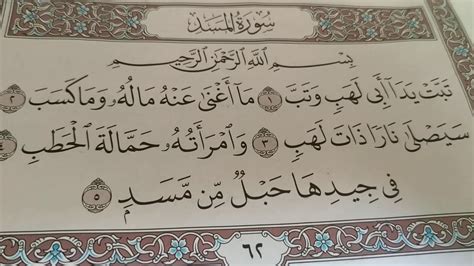 سُورَةُ المَسَدِ
بِسْمِ ٱللَّهِ ٱلرَّحْمَٰنِ ٱلرَّحِيمِ
تَبَّتْ يَدَآ أَبِى لَهَبٍ وَتَبَّ ١ مَآ أَغْنَىٰ عَنْهُ مَالُهُۥ وَمَا كَسَبَ ٢
سَيَصْلَىٰ نَارًا ذَاتَ لَهَبٍ ٣ وَٱمْرَأَتُهُۥ حَمَّالَةَ ٱلْحَطَبِ ٤
فِى جِيدِهَا حَبْلٌ مِّن مَّسَدٍۭ ٥
٦٢